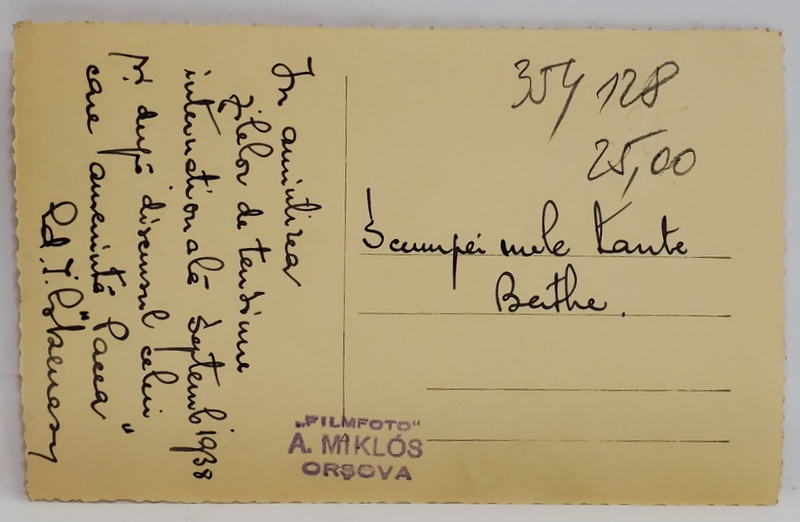 In amintirea
zilelor de tensiune
internațională Septemb 1938
și după discursul celui
care amenință "Pacea"
354 128
25,00
Scumpei mele Tante
Berthe.
„FILMFOTO"
A. MIKLÓS
ORȘOVA